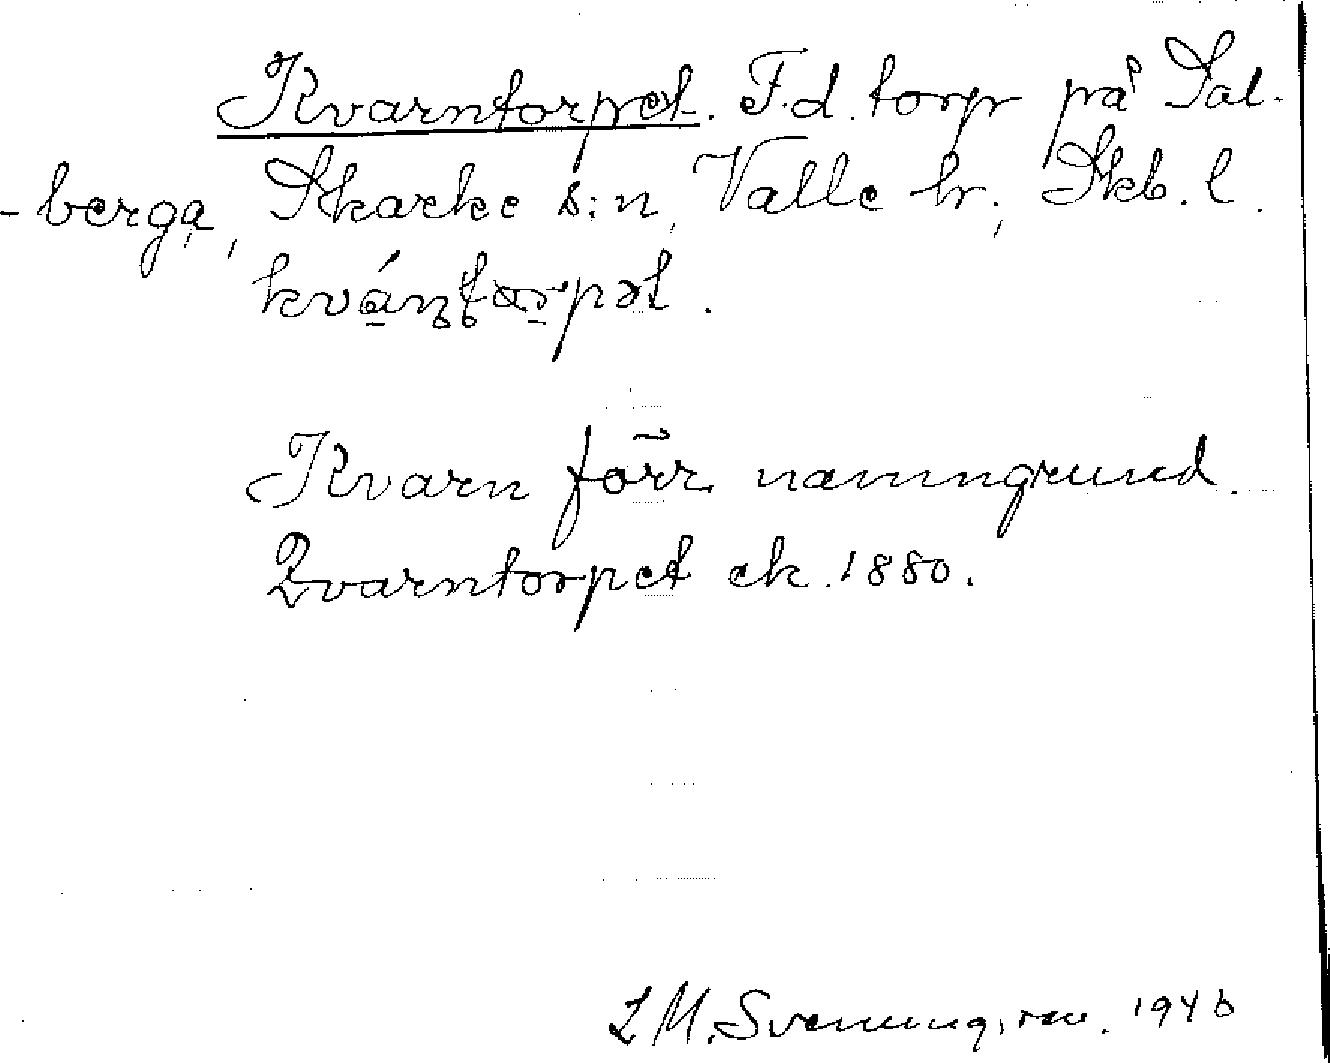 Kvarntorpet. F.d. torp på Sal-
-berga, Skarke s:n, Valle hr, Skb. l.
Kvarn förr. namngrund.
Qvarntorpet ek. 1880.
M. Svenung, 1946